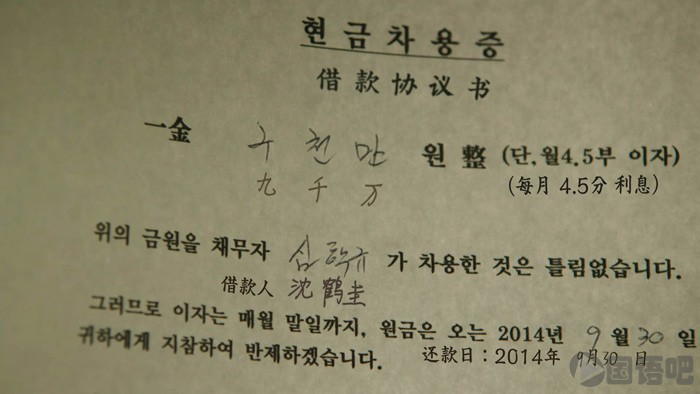 현금차용증
借款协议书
一金 구천만 원 整 (단, 월4.5부 이자)
九千万 (每月 4.5分 利息)
위의 금원을 채무자 심학규 가 차용한 것은 틀림없습니다.
借款人 沈鹤圭
그러므로 이자는 매월 말일까지, 원금은 오는 2014년 9월 30일
귀하에게 지참하여 반제하겠습니다. 还款日：2014年 9月30 日
国语吧